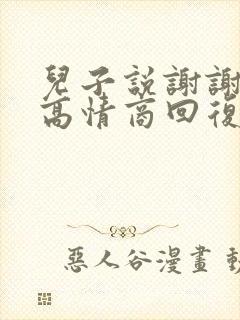 兒子説謝謝
高情商回復
惡人谷漫畫